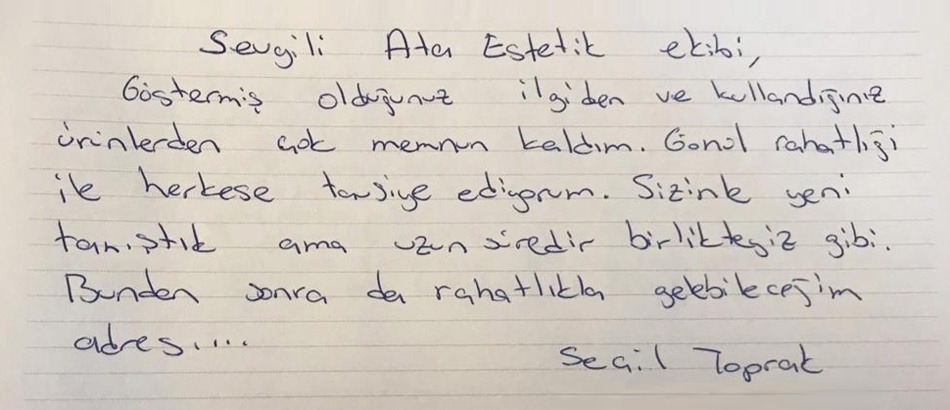 Sevgili Ata Estetik ekibi,
Göstermiş olduğunuz ilgiden ve kullandığınız
ürünlerden çok memnun kaldım. Gönül rahatlığı
ile herkese tavsiye ediyorum. Sizinle yeni
tanıştık ama uzun süredir birlikteyiz gibi.
Bundan sonra da rahatlıkla gelebileceğim
adres.....
Seçil Toprak